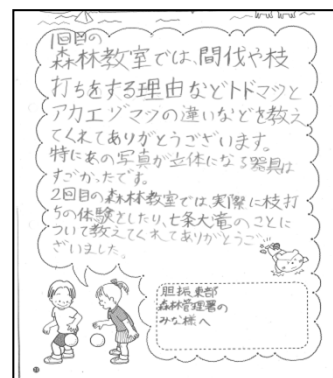 1回目の
森林教室では、間伐や枝
打ちをする理由などトドマツと
アカエゾマツの違いなどを教え
てくれてありがとうございます。
特にあの写真が立体になる器具は
すごかったです。
2回目の森林教室では、実際に枝打
ちの体験としたり、七条大滝のことに
ついて教えてくれてありがとうご
ざいました。
胆振東部
森林管理署の
みな様へ